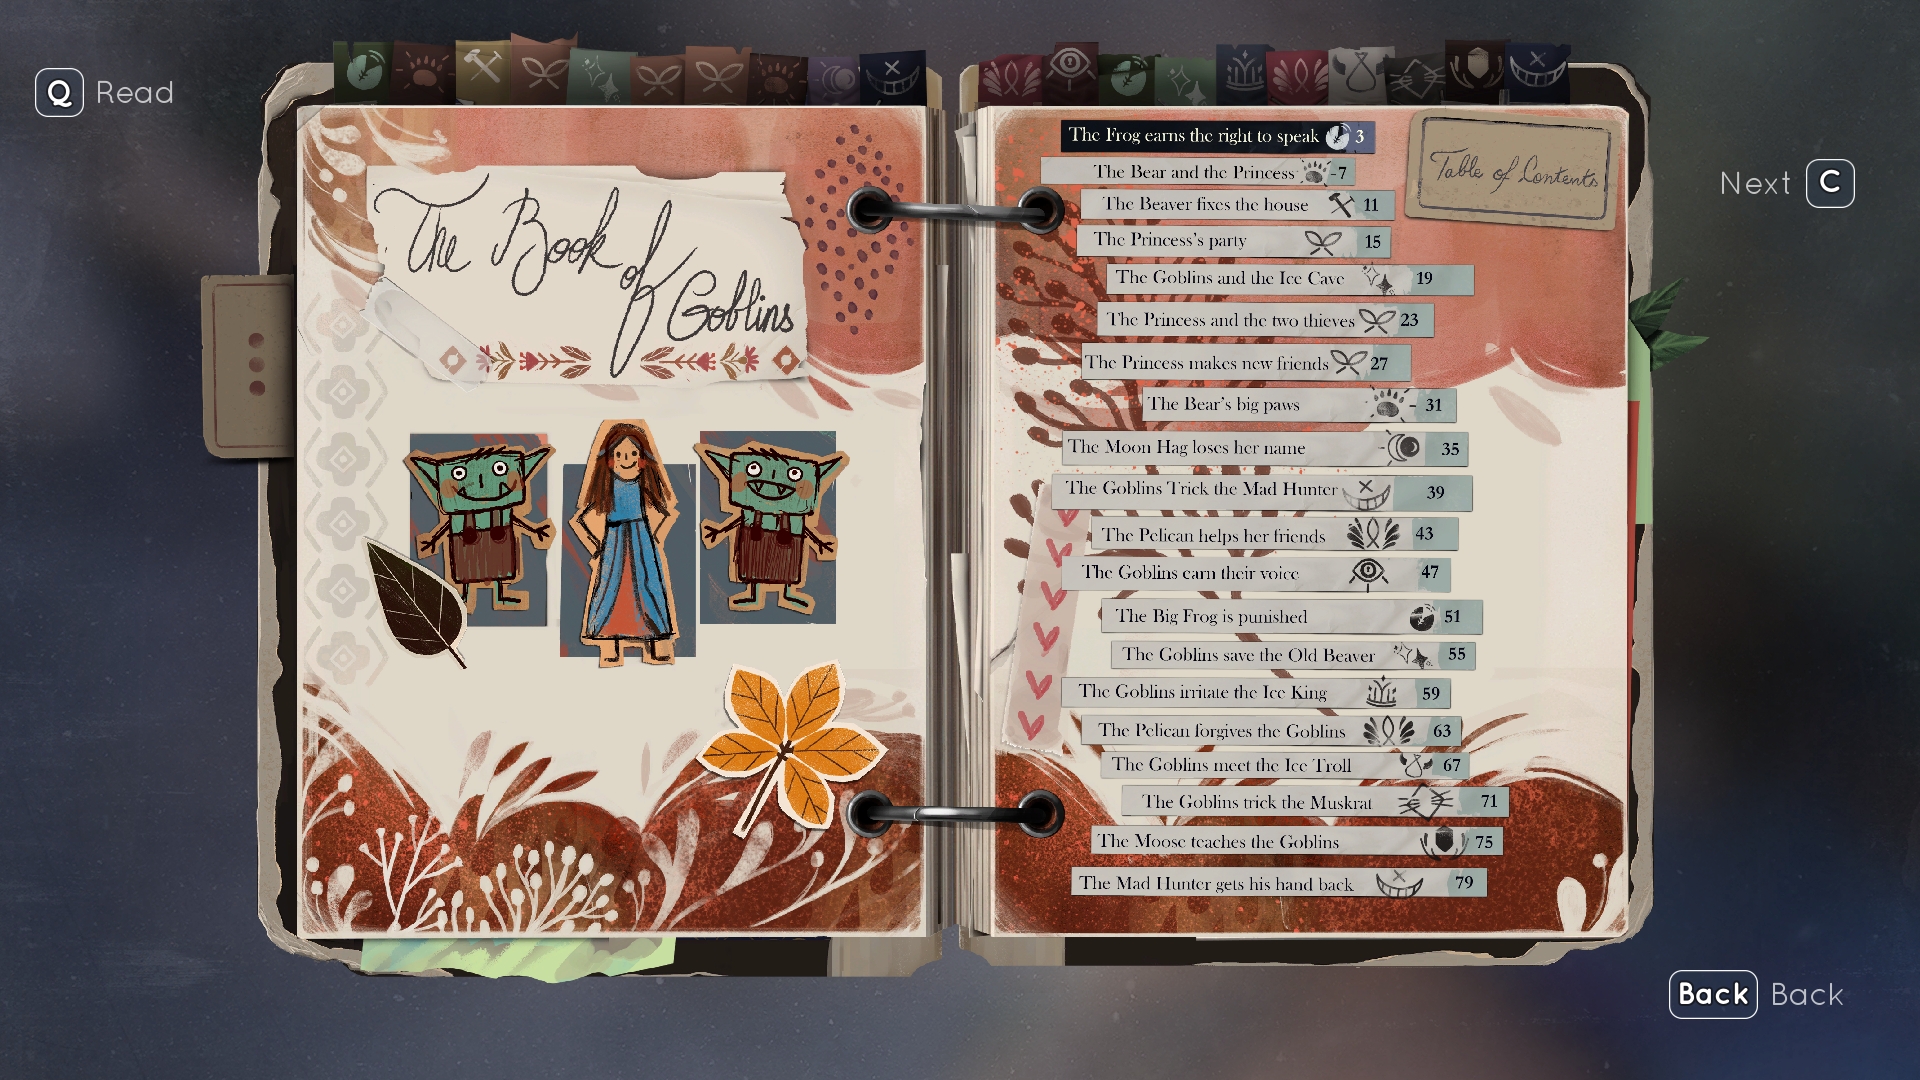 Q Read
The Book of Goblins
Table of Contents
The Frog earns the right to speak 3
The Bear and the Princess 7
The Beaver fixes the house 11
The Princess's party 15
The Goblins and the Ice Cave 19
The Princess and the two thieves 23
The Princess makes new friends 27
The Bear's big paws 31
The Moon Hag loses her name 35
The Goblins Trick the Mad Hunter 39
The Pelican helps her friends 43
The Goblins earn their voice 47
The Big Frog is punished 51
The Goblins save the Old Beaver 55
The Goblins irritate the Ice King 59
The Pelican forgives the Goblins 63
The Goblins meet the Ice Troll 67
The Goblins trick the Muskrat 71
The Moose teaches the Goblins 75
The Mad Hunter gets his hand back 79
Next C
Back Back